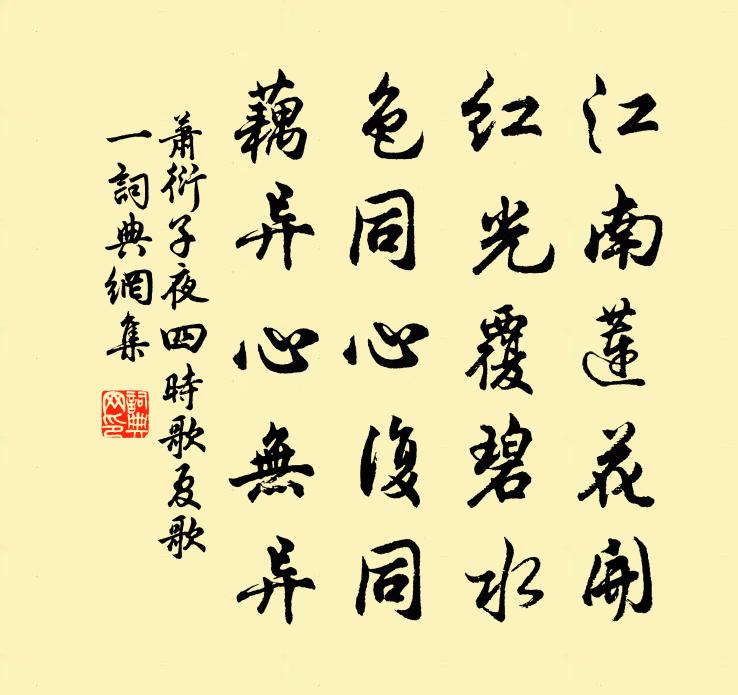 江南莲花開
红光覆碧水
色同心復同
藕异心無异
萧衍子夜四時歌夏歌
一詞典網集
詞典
网印